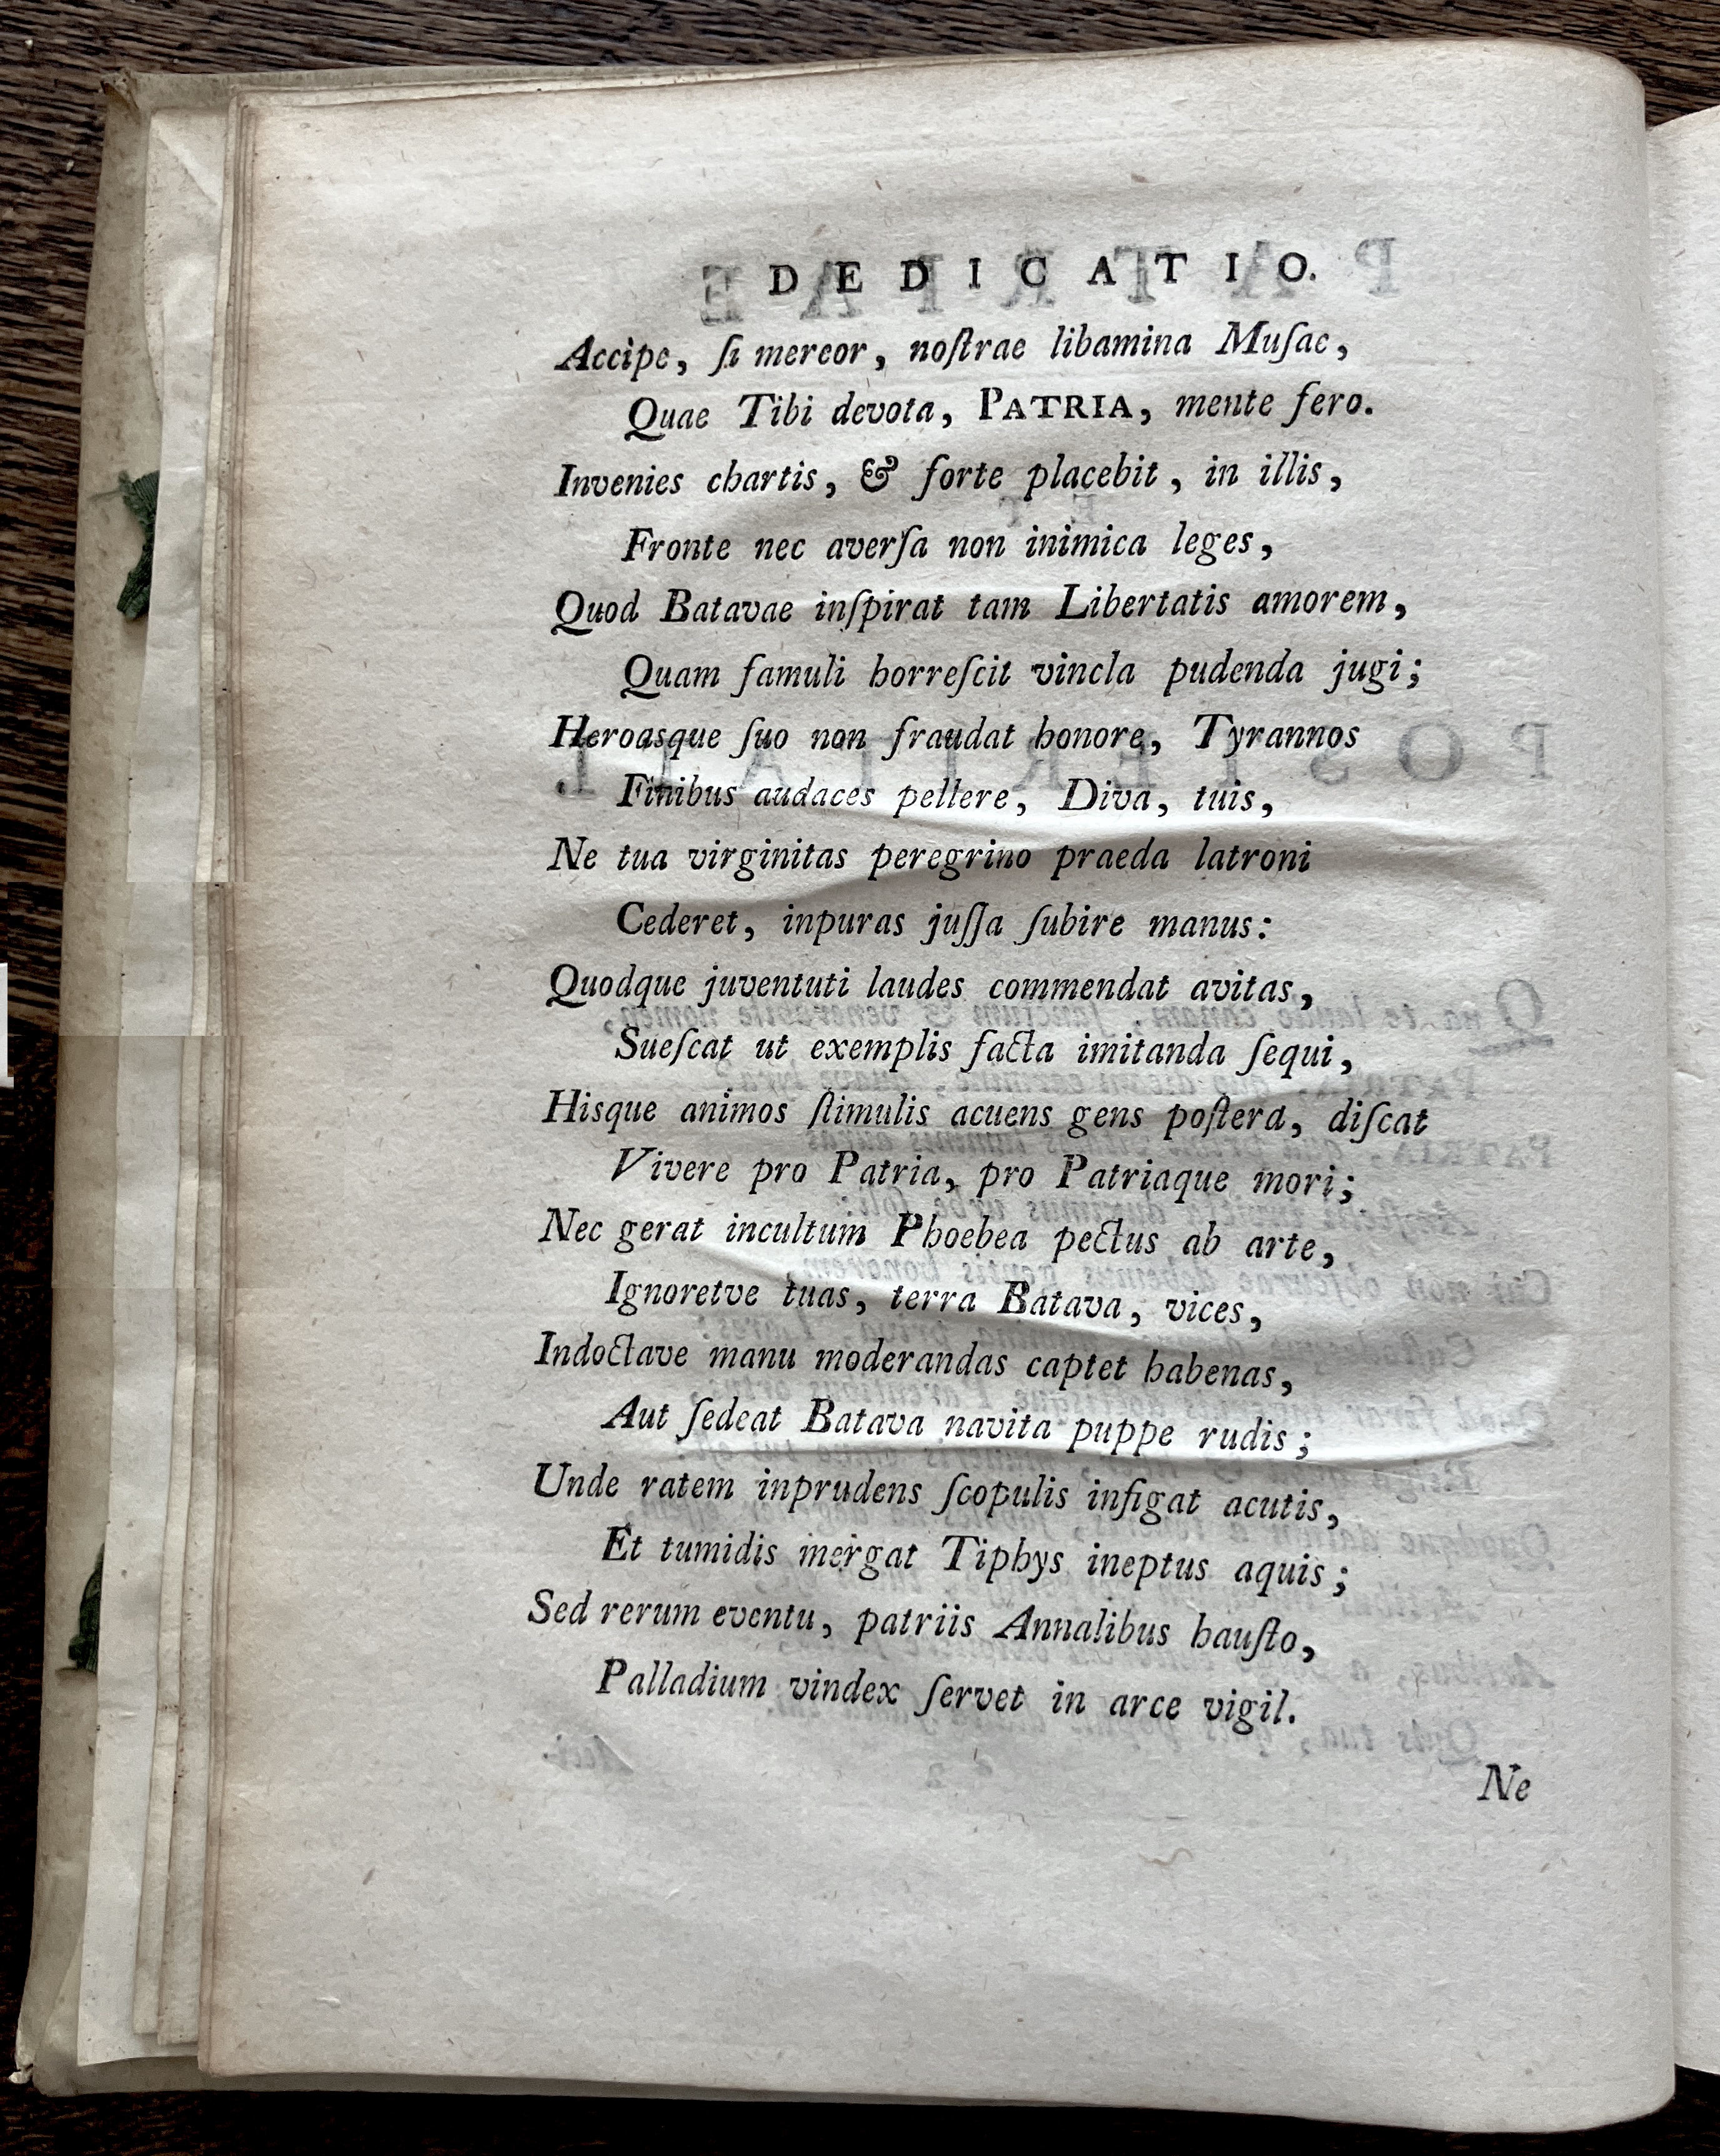 DEDICATIO.
Accipe, ſi mereor, noſtrae libamina Muſae,
Quae Tibi devota, PATRIA, mente fero.
Invenies chartis, & forte placebit, in illis,
Fronte nec averſa non inimica leges,
Quod Batavae inſpirat tam Libertatis amorem,
Quam famuli horreſcit vincla pudenda jugi;
Heroasque ſuo non fraudat honore, Tyrannos
Finibus audaces pellere, Diva, tuis,
Ne tua virginitas peregrino praeda latroni
Cederet, inpuras juſſa ſubire manus:
Quodque juventuti laudes commendat avitas,
Sueſcat ut exemplis facta imitanda ſequi,
Hisque animos ſtimulis acuens gens poſtera, diſcat
Vivere pro Patria, pro Patriaque mori;
Nec gerat incultum Phoebea pectus ab arte,
Ignoretve tuas, terra Batava, vices,
Indoctave manu moderandas captet habenas,
Aut ſedeat Batava navita puppe rudis;
Unde ratem inprudens ſcopulis infigat acutis,
Et tumidis mergat Tiphys ineptus aquis;
Sed rerum eventu, patriis Annalibus hauſto,
Palladium vindex ſervet in arce vigil.
Ne